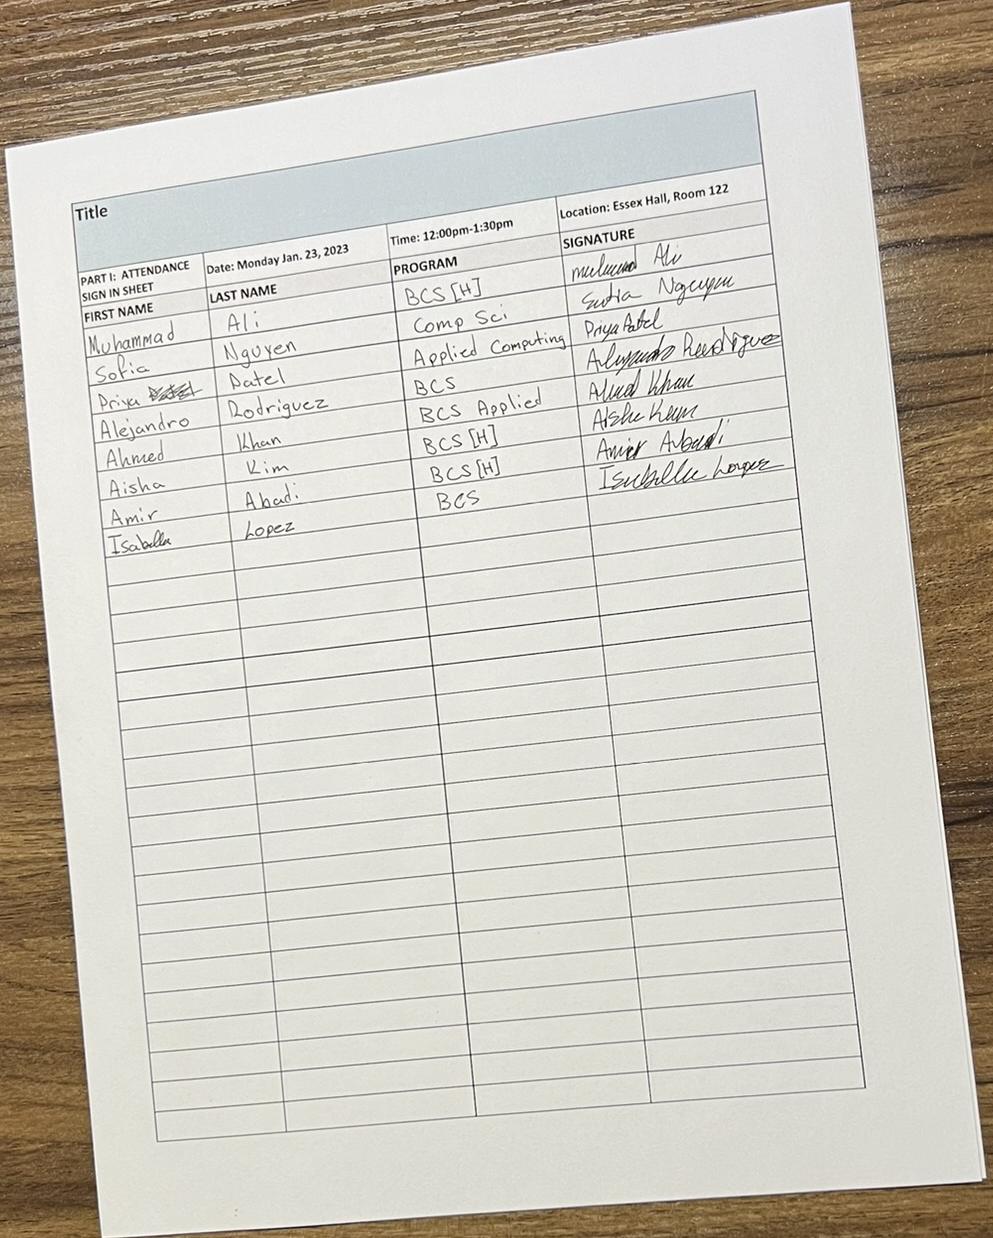 Title
PART I: ATTENDANCE SIGN IN SHEET Date: Monday Jan. 23, 2023 Time: 12:00pm-1:30pm Location: Essex Hall, Room 122
FIRST NAME LAST NAME PROGRAM SIGNATURE
Muhammad Ali BCS [H] Ali
Sofia Nguyen Comp Sci Sofia Nguyen
Priya Patel Applied Computing Priya Patel
Alejandro Rodriguez BCS Alejandro Rodriguez
Ahmed Khan BCS Applied Ahmed Khan
Aisha Kim BCS [H] Aisha
Amir Abadi BCS [H] Amir Abadi
Isabella Lopez BCS Isabella Lopez